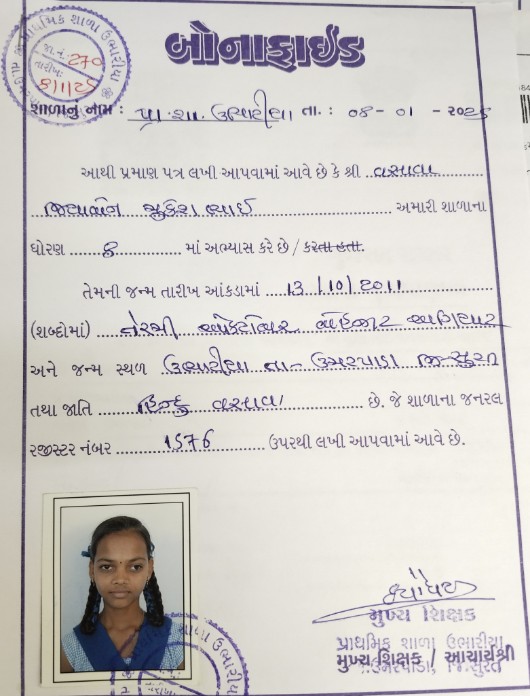 પ્રાથમિક શાળા ઉભારીયા
જા.નં. 270
તારીખ:
બોનાફાઈડ
શાળાનું નામ : પ્રા. શા. ઉભારીયા તા. : 08 - 01 -
આથી પ્રમાણ પત્ર લખી આપવામાં આવે છે કે શ્રી વસાવા
અમારી શાળાના
ધોરણ 8 માં અભ્યાસ કરે છે / કરતા હતા.
તેમની જન્મ તારીખ આંકડામાં 13 / 10 / 2011
(શબ્દોમાં) તેરમી ઓક્ટોબર બે હજાર અગિયાર
અને જન્મ સ્થળ ઉભારીયા તા- ઉમરપાડા જી-સુરત
તથા જાતિ હિન્દુ વસાવા છે. જે શાળાના જનરલ
રજીસ્ટર નંબર 1576 ઉપરથી લખી આપવામાં આવે છે.
મુખ્ય શિક્ષક
પ્રાથમિક શાળા ઉભારીયા
મુખ્ય શિક્ષક / આચાર્યશ્રી